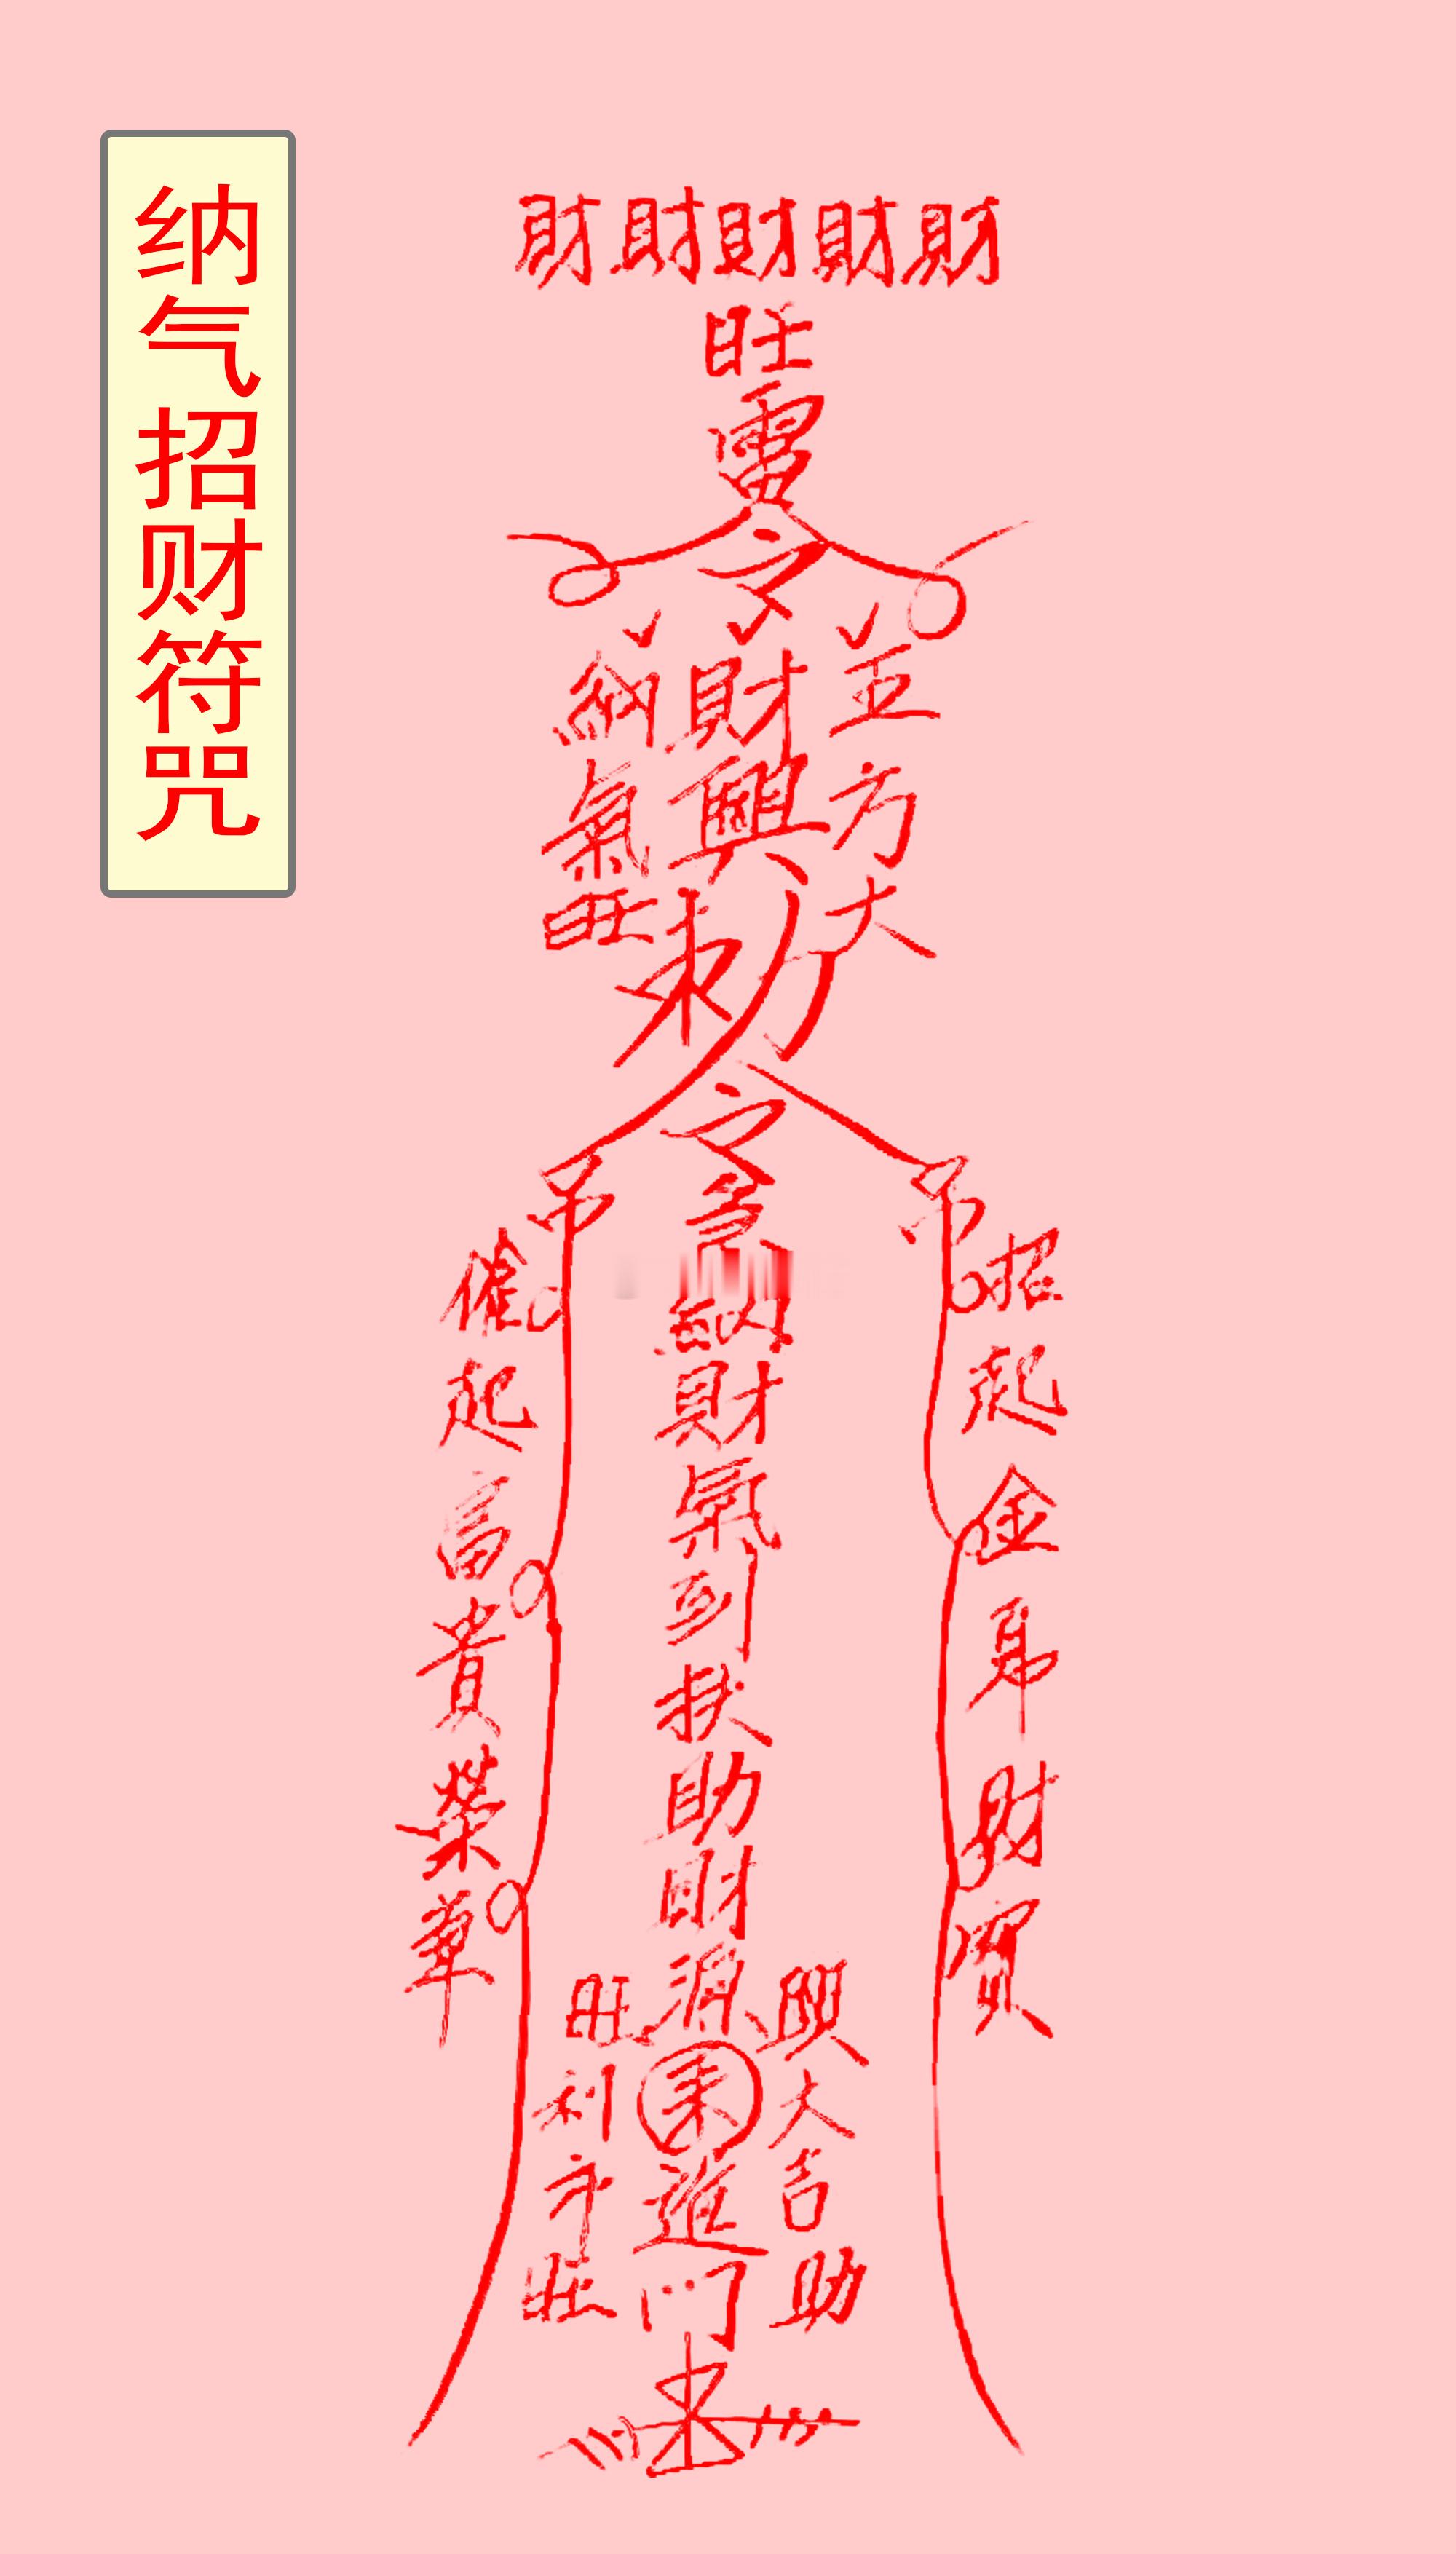 纳气招财符咒
財財財財財
旺
雷
令
納氣旺
財興
五方大
勅令
納財氣到扶助財源来進門
催起富貴榮章
招起金帛財寳
旺利市旺
興大吉助